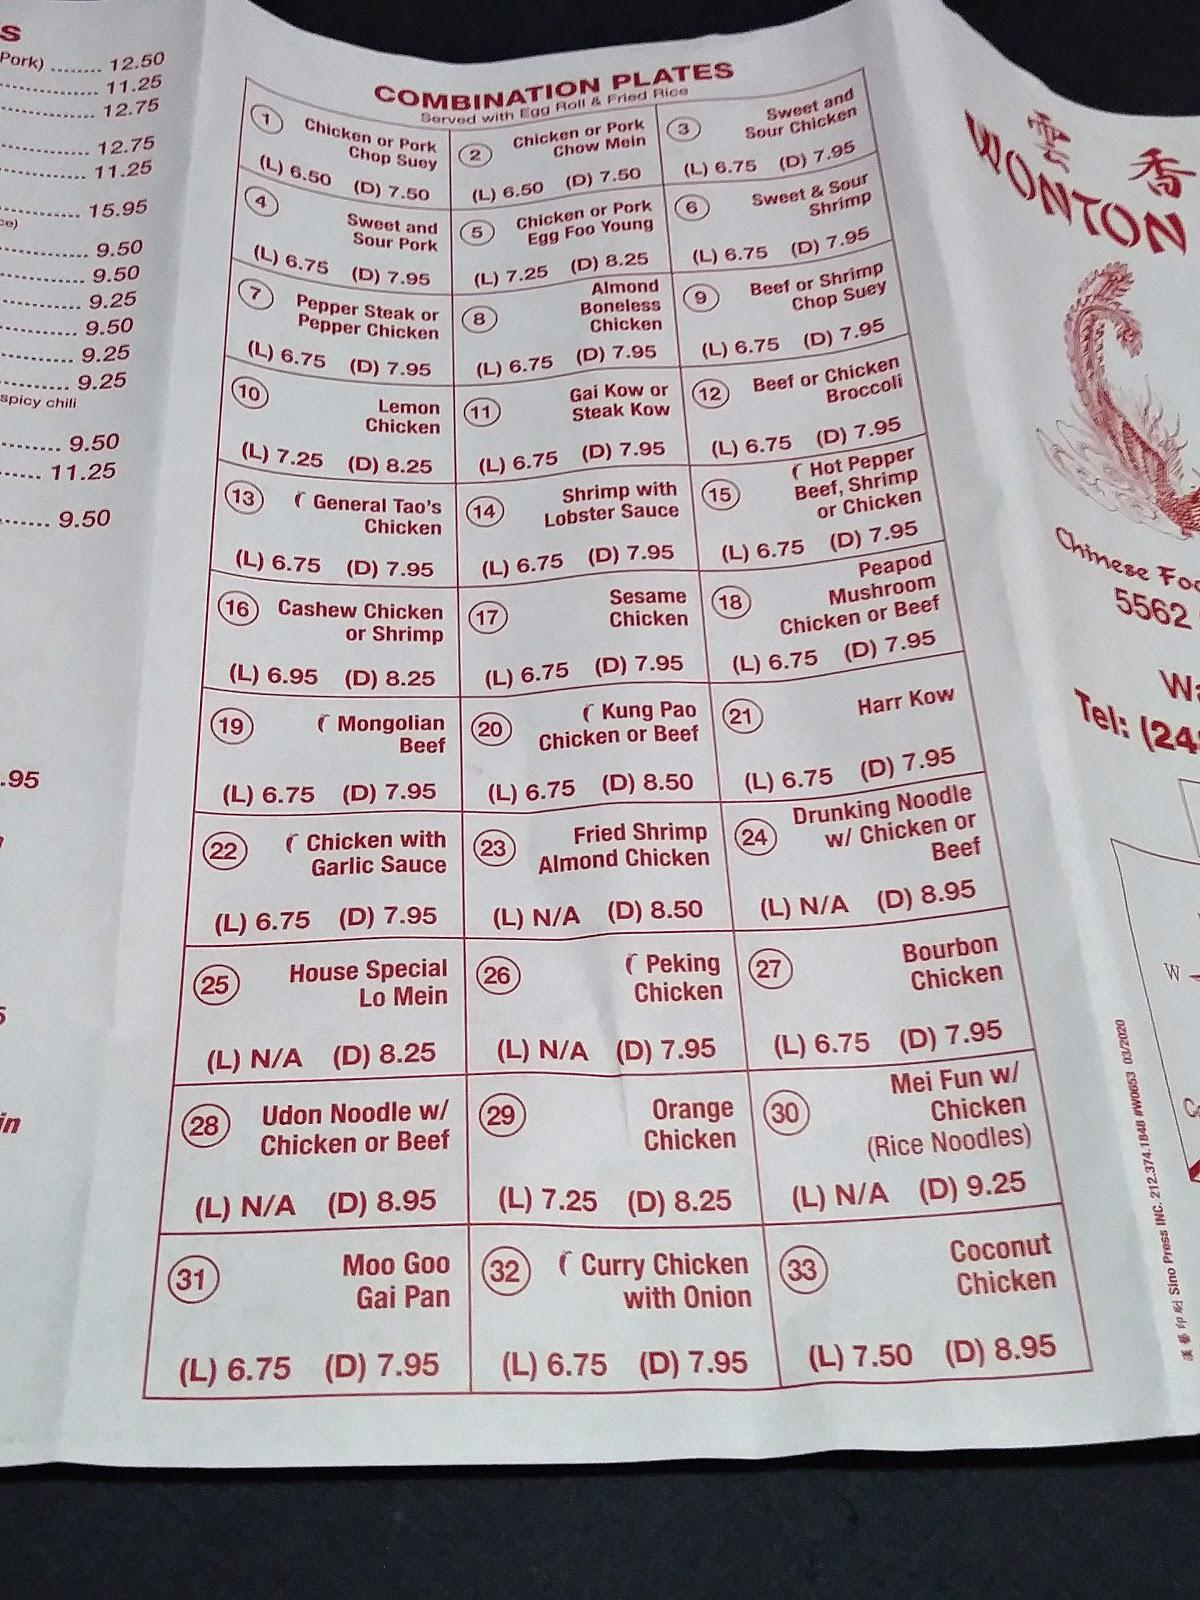 S
Pork) ........ 12.50
11.25
12.75
12.75
11.25
15.95
ce)
9.50
9.50
9.25
9.50
9.25
9.25
spicy chili
9.50
11.25
9.50
.95
5
in
COMBINATION PLATES
Served with Egg Roll & Fried Rice
1 Chicken or Pork
Chop Suey
(L) 6.50 (D) 7.50
2 Chicken or Pork
Chow Mein
(L) 6.50 (D) 7.50
3 Sweet and
Sour Chicken
(L) 6.75 (D) 7.95
4 Sweet and
Sour Pork
(L) 6.75 (D) 7.95
5 Chicken or Pork
Egg Foo Young
(L) 7.25 (D) 8.25
6 Sweet & Sour
Shrimp
(L) 6.75 (D) 7.95
7 Pepper Steak or
Pepper Chicken
(L) 6.75 (D) 7.95
8 Almond
Boneless
Chicken
(L) 6.75 (D) 7.95
9 Beef or Shrimp
Chop Suey
(L) 6.75 (D) 7.95
10 Lemon
Chicken
(L) 7.25 (D) 8.25
11 Gai Kow or
Steak Kow
(L) 6.75 (D) 7.95
12 Beef or Chicken
Broccoli
(L) 6.75 (D) 7.95
13 General Tao's
Chicken
(L) 6.75 (D) 7.95
14 Shrimp with
Lobster Sauce
(L) 6.75 (D) 7.95
15 Hot Pepper
Beef, Shrimp
or Chicken
(L) 6.75 (D) 7.95
16 Cashew Chicken
or Shrimp
(L) 6.95 (D) 8.25
17 Sesame
Chicken
(L) 6.75 (D) 7.95
18 Peapod
Mushroom
Chicken or Beef
(L) 6.75 (D) 7.95
19 Mongolian
Beef
(L) 6.75 (D) 7.95
20 Kung Pao
Chicken or Beef
(L) 6.75 (D) 8.50
21 Harr Kow
(L) 6.75 (D) 7.95
22 Chicken with
Garlic Sauce
(L) 6.75 (D) 7.95
23 Fried Shrimp
Almond Chicken
(L) N/A (D) 8.50
24 Drunking Noodle
w/ Chicken or
Beef
(L) N/A (D) 8.95
25 House Special
Lo Mein
(L) N/A (D) 8.25
26 Peking
Chicken
(L) N/A (D) 7.95
27 Bourbon
Chicken
(L) 6.75 (D) 7.95
28 Udon Noodle w/
Chicken or Beef
(L) N/A (D) 8.95
29 Orange
Chicken
(L) 7.25 (D) 8.25
30 Mei Fun w/
Chicken
(Rice Noodles)
(L) N/A (D) 9.25
31 Moo Goo
Gai Pan
(L) 6.75 (D) 7.95
32 Curry Chicken
with Onion
(L) 6.75 (D) 7.95
33 Coconut
Chicken
(L) 7.50 (D) 8.95
香
WONTON
Chinese Foo
5562
Wa
Tel: (24
W
Sino Press INC. 212.374.1848 #W0653 03/2020